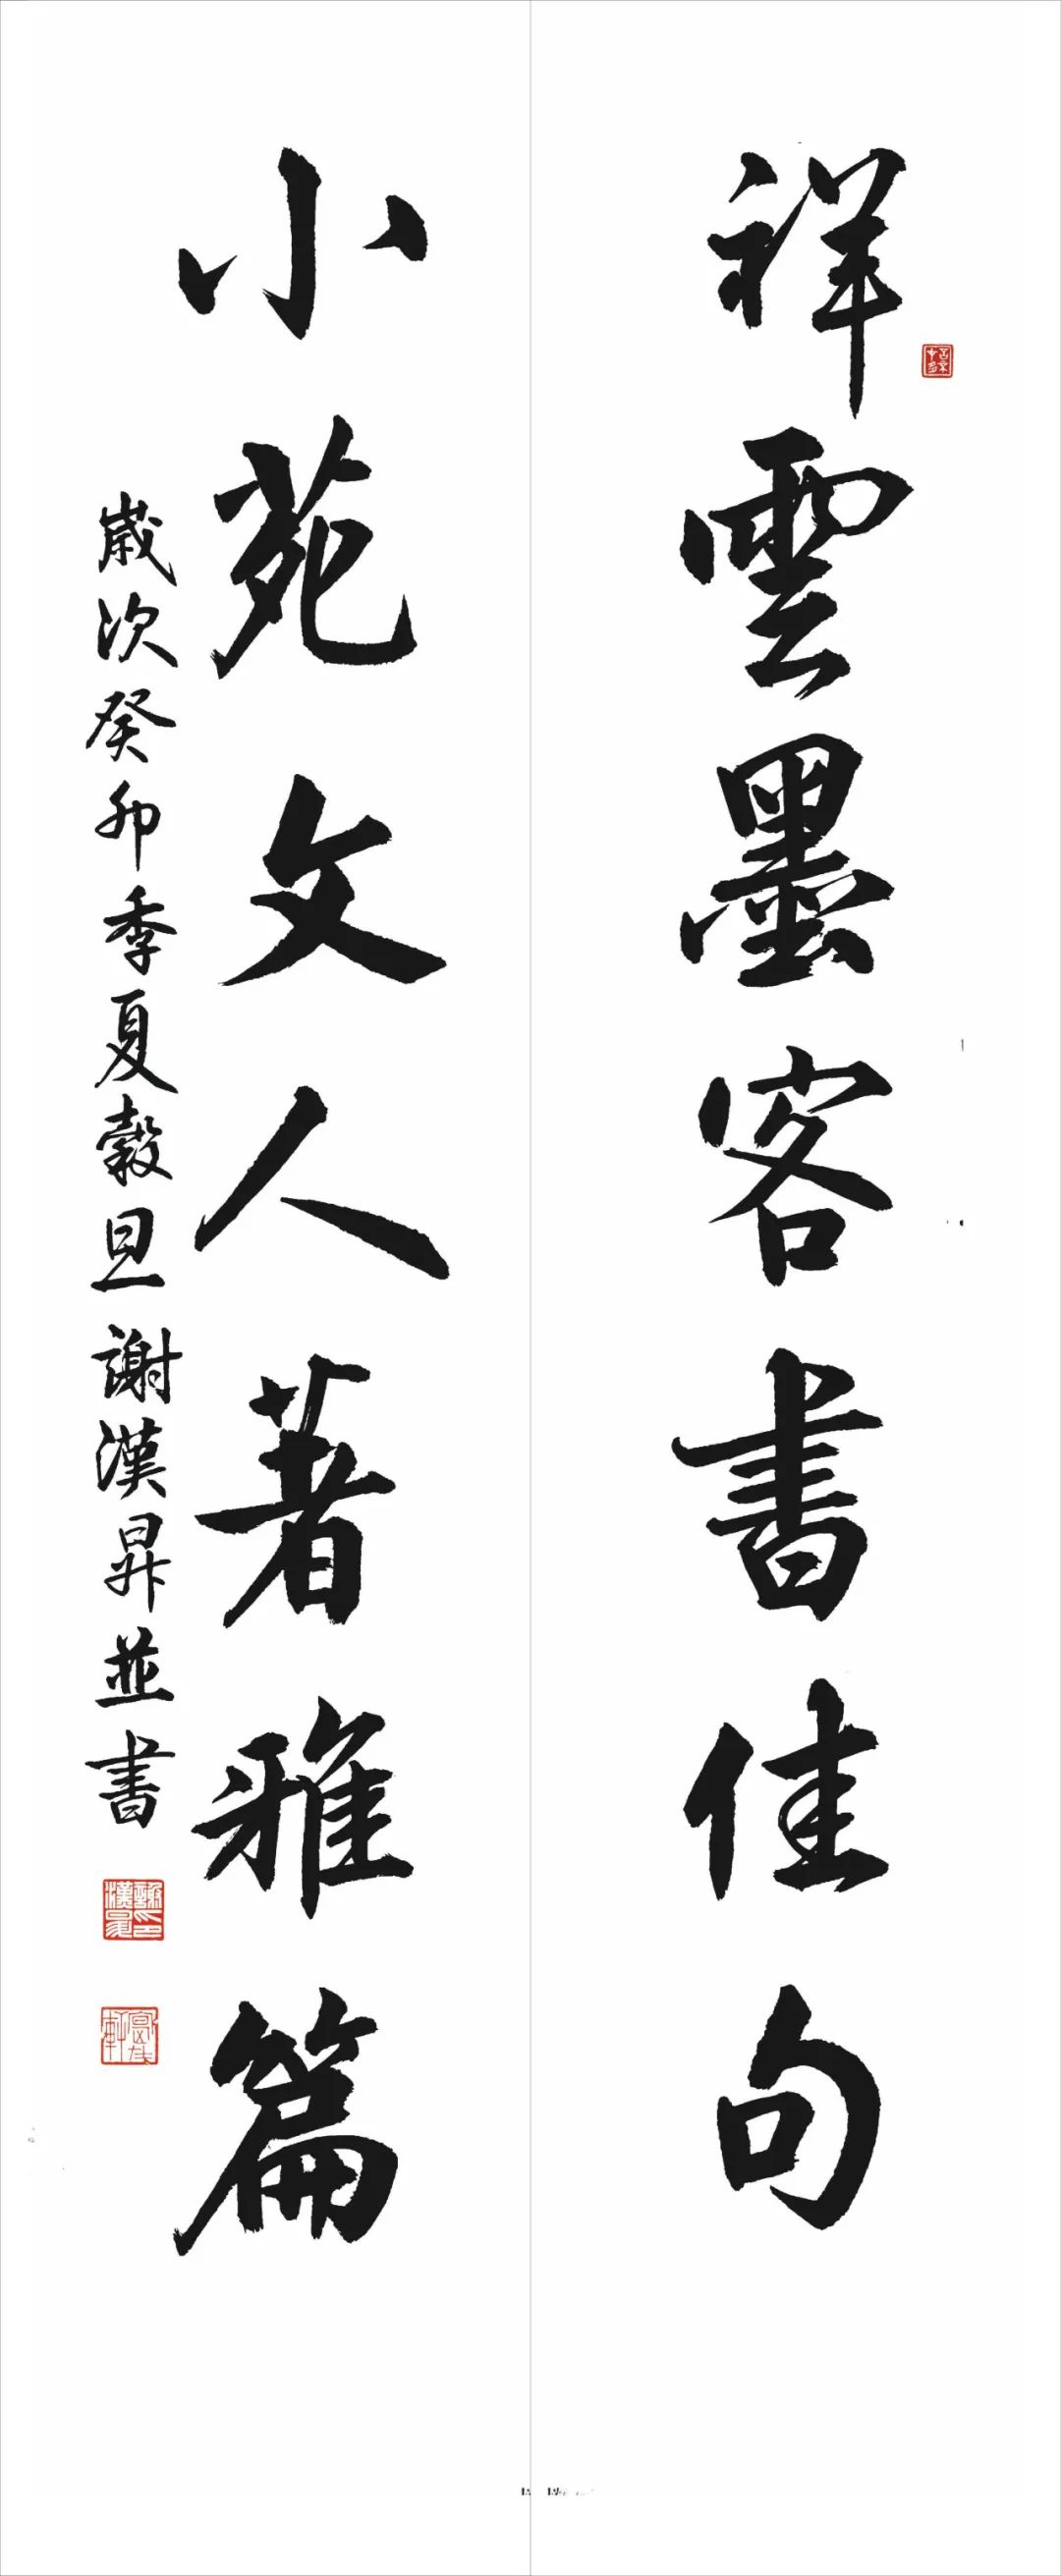 祥雲墨客書佳句
小苑文人著雅篇
歲次癸卯季夏穀旦謝漢昇並書